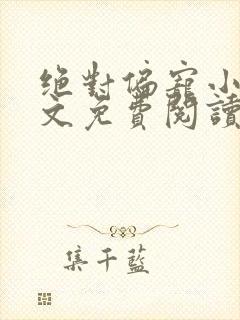 絕對偏寵小
文免費閱讀
集千藍